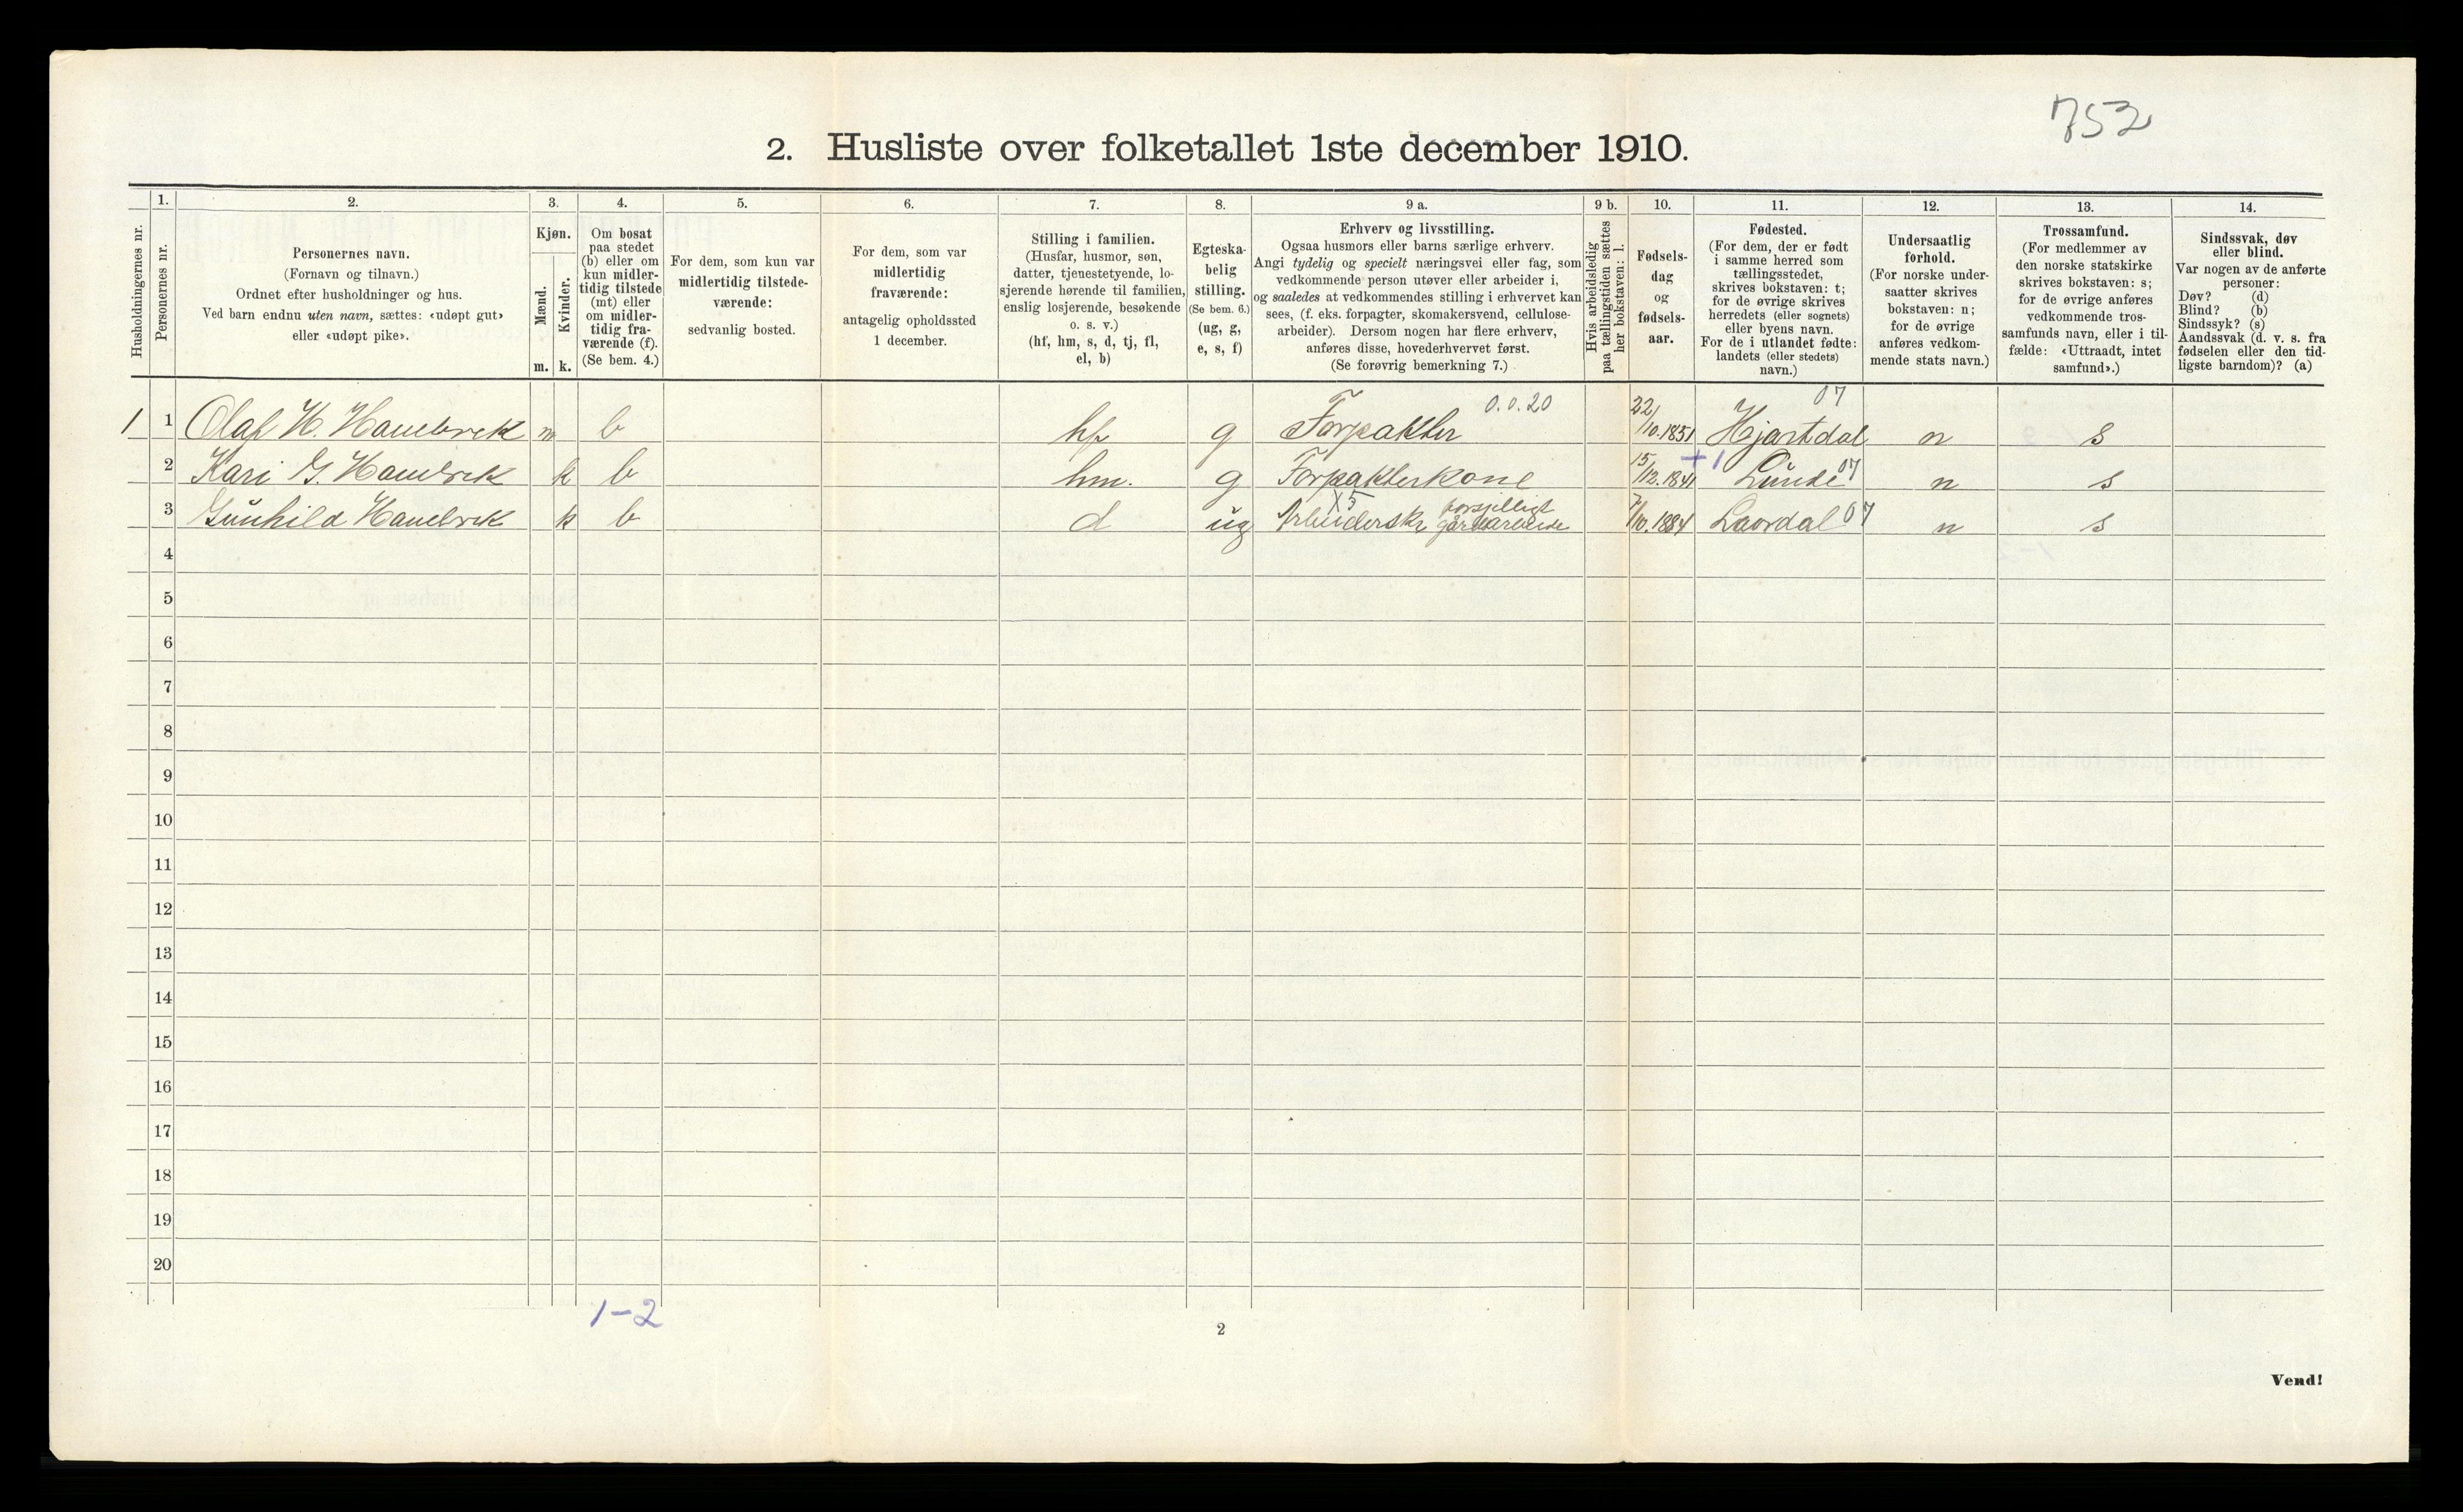 752
2. Husliste over folketallet 1ste december 1910.
Husholdningernes nr.
1.
Personernes nr.
2.
Personernes navn.
(Fornavn og tilnavn.)
Ordnet efter husholdninger og hus.
Ved barn endnu uten navn, sættes: «udøpt gut»
eller «udøpt pike».
3.
Kjøn.
Mænd.
m.
Kvinder.
k.
4.
Om bosat
paa stedet
(b) eller om
kun midler-
tidig tilstede
(mt) eller
om midler-
tidig fra-
værende (f).
(Se bem. 4.)
5.
For dem, som kun var
midlertidig tilstede-
værende:
sedvanlig bosted.
6.
For dem, som var
midlertidig
fraværende:
antagelig opholdssted
1 december.
7.
Stilling i familien.
(Husfar, husmor, søn,
datter, tjenestetyende, lo-
sjerende hørende til familien,
enslig losjerende, besøkende
o. s. v.)
(hf, hm, s, d, tj, fl,
el, b)
8.
Egteska-
belig
stilling.
(Se bem. 6.)
(ug, g,
e, s, f)
9 a.
Erhverv og livsstilling.
Ogsaa husmors eller barns særlige erhverv.
Angi tydelig og specielt næringsvei eller fag, som
vedkommende person utøver eller arbeider i,
og saaledes at vedkommendes stilling i erhvervet kan
sees, (f. eks. forpagter, skomakersvend, cellulose-
arbeider). Dersom nogen har flere erhverv,
anføres disse, hovederhvervet først.
(Se forøvrig bemerkning 7.)
9 b.
Hvis arbeidsledig
paa tællingstiden sættes
her bokstaven: l.
10.
Fødsels-
dag
og
fødsels-
aar.
11.
Fødested.
(For dem, der er født
i samme herred som
tællingsstedet,
skrives bokstaven: t;
for de øvrige skrives
herredets (eller sognets)
eller byens navn.
For de i utlandet fødte:
landets (eller stedets)
navn.)
12.
Undersaatlig
forhold.
(For norske under-
saatter skrives
bokstaven: n;
for de øvrige
anføres vedkom-
mende stats navn.)
13.
Trossamfund.
(For medlemmer av
den norske statskirke
skrives bokstaven: s;
for de øvrige anføres
vedkommende tros-
samfunds navn, eller i til-
fælde: «Uttraadt, intet
samfund».)
14.
Sindssvak, døv
eller blind.
Var nogen av de anførte
personer:
Døv? (d)
Blind? (b)
Sindssyk? (s)
Aandssvak (d. v. s. fra
fødselen eller den tid-
ligste barndom)? (a)
0.0.20 07
1 1 Olaf H. Hambrek m b hf g Forpakter 22/10.1851 Hjartdal n s
2 Kari G. Hambrek k b hm. g Forpakterkone 15/12.1841 +1 Lunde 07 n s
X5 forsjelligt
3 Gunhild Hambrek k b d ug Arbeiderske gårdarbeide 7/10.1884 Laordal 07 n s
4
5
6
7
8
9
10
11
12
13
14
15
16
17
18
19
20
1-2
2
Vend!